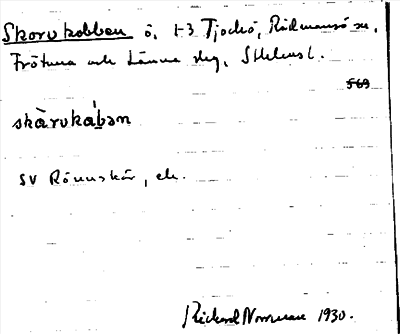 Skorvkobben ö, t-3 Tjockö, Rådmansö sn,
Frötuna och Länna skg, Sthlms l.
569
skàrvkáb̀ən
SV Rönnskär, ek.
Rickard Norrman 1930.